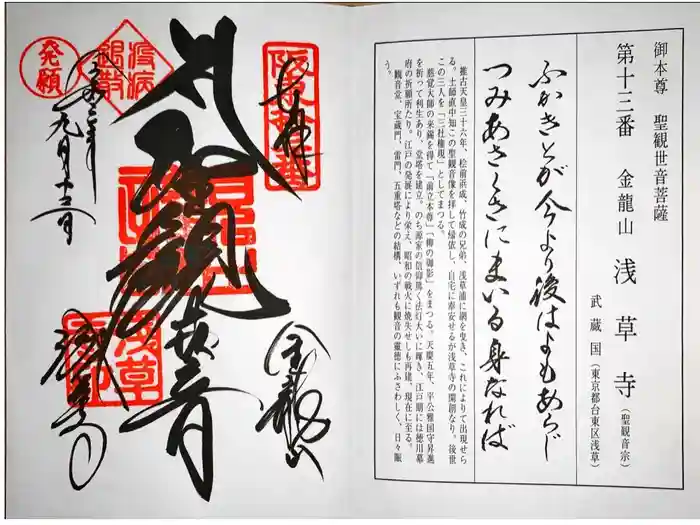 御本尊 聖観世音菩薩
第十三番 金龍山 浅草寺(聖観音宗)
武蔵国(東京都台東区浅草)
ふかきとが今より後はよもあらじ
つみあさくさにまいる身なれば
推古天皇三十六年、桧前浜成、竹成の兄弟、浅草浦に網を曳き、これによりて出現せら
る。土師直中知この聖観音像を拝して帰依し、自宅に奉安せるが浅草寺の開創なり。後世
この三人を「三社権現」としてまつる。
慈覚大師の来錫を得て「前立本尊」「柳の御影」をまつる。天慶五年、平公雅国守昇進
を祈って利生あり、堂塔を建立。のち源家の信仰篤く法灯大いに輝き、江戸期には徳川幕
府の祈願所たり。江戸の発展により栄え、昭和の戦火に焼失せしも再建、現在に至る。
観音堂、宝蔵門、雷門、五重塔などの結構、いずれも観音の霊徳にふさわしく、日々賑
う。
奉拝
金龍山
聖観世音
浅草寺
九月十三日
疫病
発願
浅草